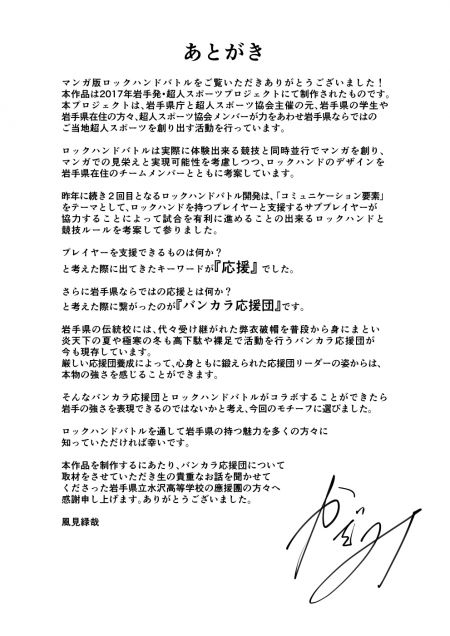 あとがき
マンガ版ロックハンドバトルをご覧いただきありがとうございました！
本作品は2017年岩手発・超人スポーツプロジェクトにて制作されたものです。
本プロジェクトは、岩手県庁と超人スポーツ協会主催の元、岩手県の学生や
岩手県在住の方々、超人スポーツ協会メンバーが力をあわせ岩手県ならではの
ご当地超人スポーツを創り出す活動を行っています。
ロックハンドバトルは実際に体験出来る競技と同時並行でマンガを創り、
マンガでの見栄えと実現可能性を考慮しつつ、ロックハンドのデザインを
岩手県在住のチームメンバーとともに考案しています。
昨年に続き２回目となるロックハンドバトル開発は、「コミュニケーション要素」
をテーマとして、ロックハンドを持つプレイヤーと支援するサブプレイヤーが
協力することによって試合を有利に進めることの出来るロックハンドと
競技ルールを考案して参りました。
プレイヤーを支援できるものは何か？
と考えた際に出てきたキーワードが『応援』でした。
さらに岩手県ならではの応援とは何か？
と考えた際に繋がったのが『バンカラ応援団』です。
岩手県の伝統校には、代々受け継がれた弊衣破帽を普段から身にまとい
炎天下の夏や極寒の冬も高下駄や裸足で活動を行うバンカラ応援団が
今も現存しています。
厳しい応援団養成によって、心身ともに鍛えられた応援団リーダーの姿からは、
本物の強さを感じることができます。
そんなバンカラ応援団とロックハンドバトルがコラボすることができたら
岩手の強さを表現できるのではないかと考え、今回のモチーフに選びました。
ロックハンドバトルを通して岩手県の持つ魅力を多くの方々に
知っていただければ幸いです。
本作品を制作するにあたり、バンカラ応援団について
取材をさせていただき生の貴重なお話を聞かせて
くださった岩手県立水沢高等学校の應援團の方々へ
感謝申し上げます。ありがとうございました。
風見緑哉
かざみ